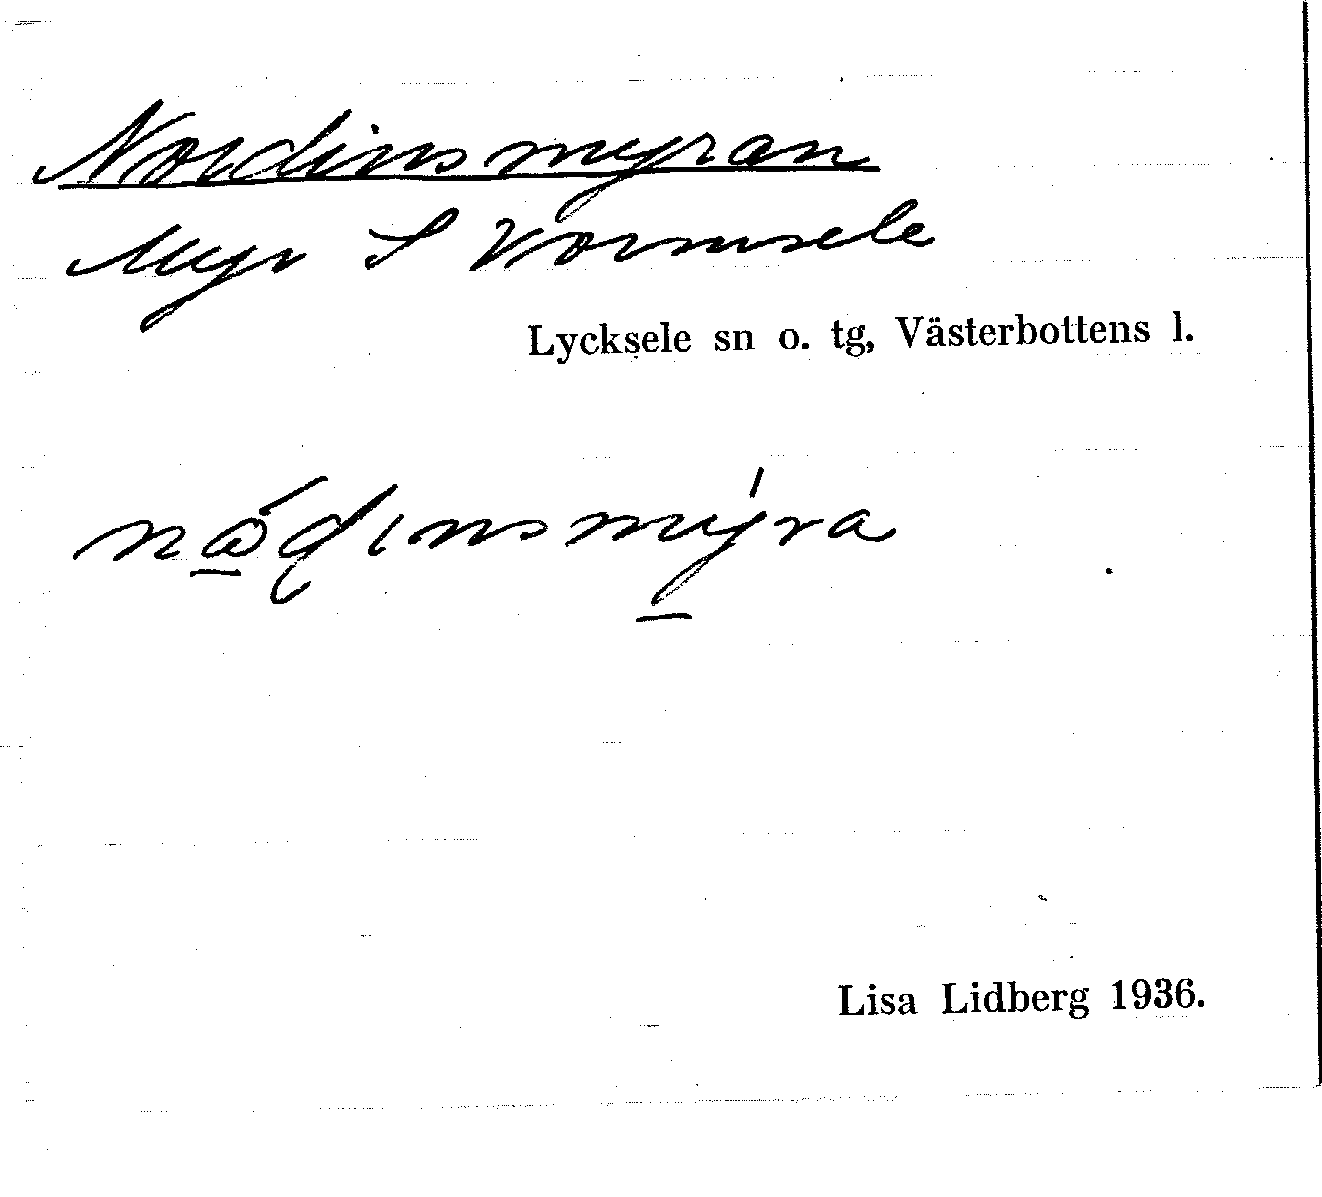 Nordinsmyran
Myr S Vormsele
Lycksele sn o. tg, Västerbottens l.
Lisa Lidberg 1936.